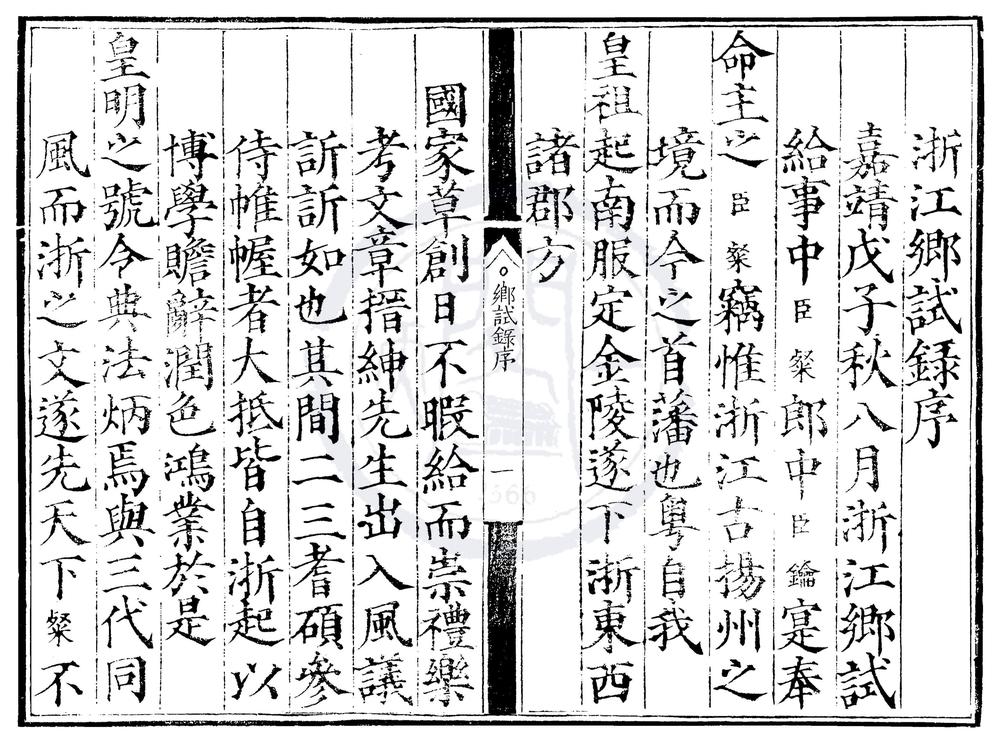 浙江鄉試録序
嘉靖戊子秋八月浙江鄉試
給事中臣粲郎中臣鑰寔奉
命主之臣粲竊惟浙江古揚州之
境而今之首藩也粤自我
皇祖起南服定金陵遂下浙東西
諸郡方
鄉試錄序
一
國家草創日不暇給而崇禮樂
考文章搢紳先生出入風議
訢訢如也其間二三耆碩參
侍帷幄者大抵皆自浙起以
博學贍辭潤色鴻業於是
皇明之號令典法炳焉與三代同
風而浙之文遂先天下粲不